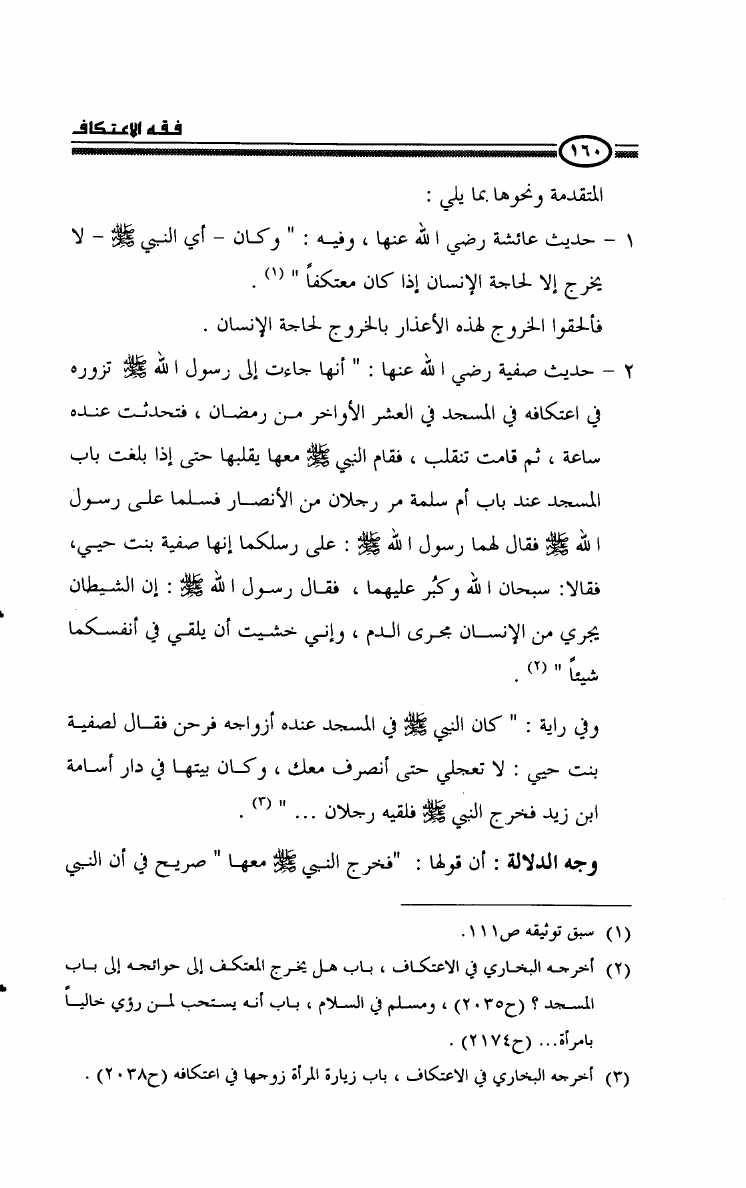 فقه الاعتكاف
١٦٠
المتقدمة ونحوها بما يلي :
١ – حديث عائشة رضي الله عنها ، وفيه : " وكان – أي النبي ﷺ – لا
يخرج إلا لحاجة الإنسان إذا كان معتكفاً " (١) .
فألحقوا الخروج لهذه الأعذار بالخروج لحاجة الإنسان .
٢ – حديث صفية رضي الله عنها : " أنها جاءت إلى رسول الله ﷺ تزوره
في اعتكافه في المسجد في العشر الأواخر من رمضان ، فتحدثت عنده
ساعة ، ثم قامت تنقلب ، فقام النبي ﷺ معها يقلبها حتى إذا بلغت باب
المسجد عند باب أم سلمة مر رجلان من الأنصار فسلما على رسول
الله ﷺ فقال لهما رسول الله ﷺ : على رسلكما إنها صفية بنت حيي،
فقالا: سبحان الله وكبُر عليهما ، فقال رسول الله ﷺ : إن الشيطان
يجري من الإنسان مجرى الدم ، وإني خشيت أن يلقي في أنفسكما
شيئاً " (٢) .
وفي راية : " كان النبي ﷺ في المسجد عنده أزواجه فرحن فقال لصفية
بنت حيي : لا تعجلي حتى أنصرف معك ، وكان بيتها في دار أسامة
ابن زيد فخرج النبي ﷺ فلقيه رجلان ... " (٣) .
وجه الدلالة : أن قولها : "فخرج النبي ﷺ معها " صريح في أن النبي
(١) سبق توثيقه ص١١١.
(٢) أخرجه البخاري في الاعتكاف ، باب هل يخرج المعتكف إلى حوائجه إلى باب
المسجد ؟ (ح٢٠٣٥) ، ومسلم في السلام ، باب أنه يستحب لمن رؤي خالياً
بامرأة... (ح٢١٧٤) .
(٣) أخرجه البخاري في الاعتكاف ، باب زيارة المرأة زوجها في اعتكافه (ح٢٠٣٨) .